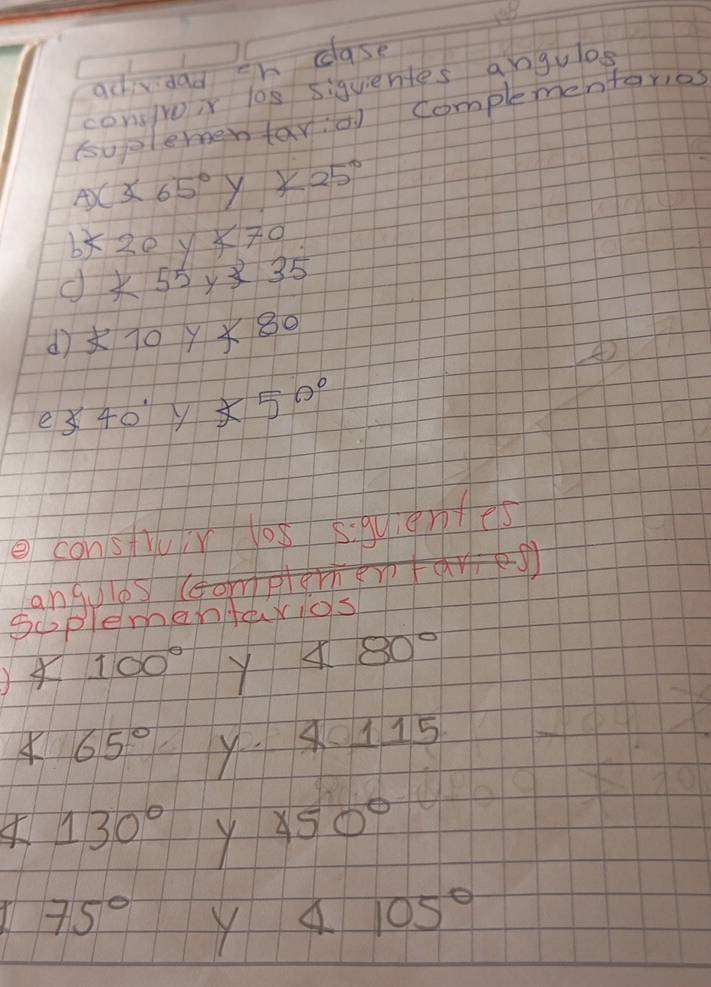 actividad en clase
construir los siguientes angulos
(suplementario) complementarios
A) ∡ 65° y ∡ 25°
b ∡ 20 y ∡ 70
c) ∡ 55 y ∡ 35
d) ∡ 10 y ∡ 80
e ∡ 40° y ∡ 50°
construir los siguientes
angulos (complementaries)
Suplementarios
) ∡ 100° y ∡ 80°
∡ 65° y ∡ 115
∡ 130° y ∡ 50°
∡ 75° y ∡ 105°